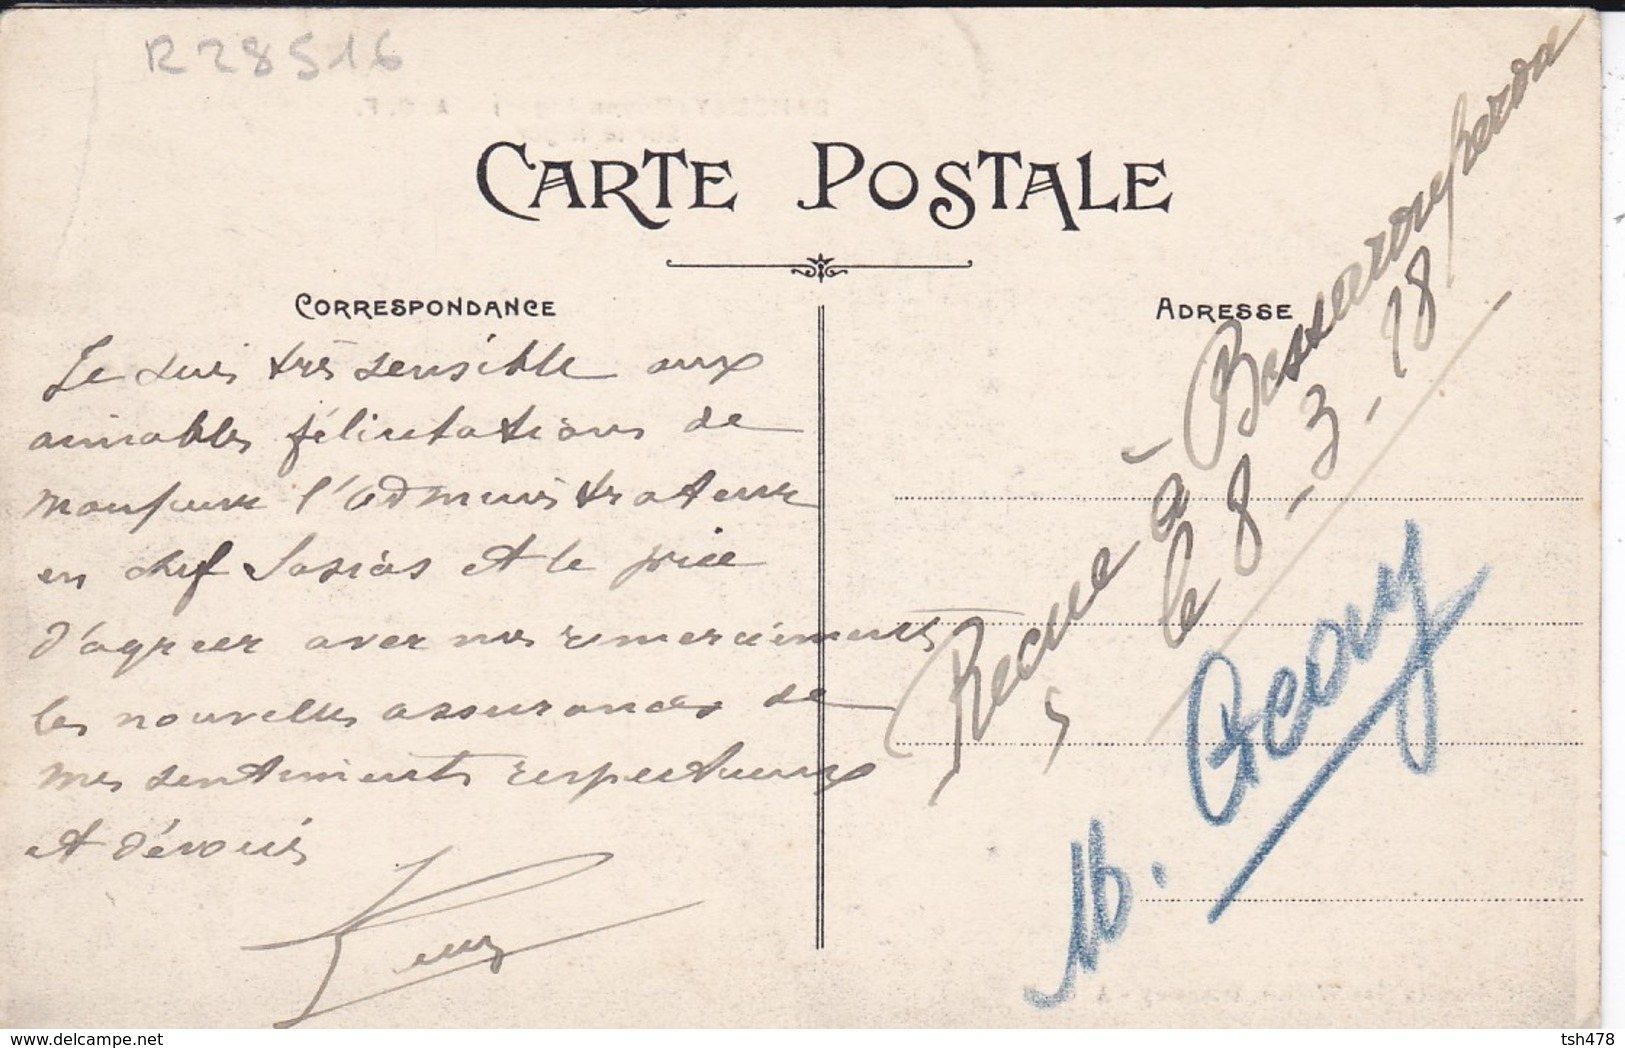 R 28516
CARTE POSTALE
CORRESPONDANCE
ADRESSE
Je suis très sensible aux
aimables félicitations de
monsieur l'administrateur
en chef et le prie
d'agréer avec mes remerciements
les nouvelles assurances de
mes sentiments respectueux
et dévoués
Recue à
le 8-3-18
M.
www.delcampe.net
tsh478